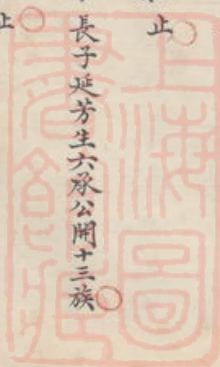 止
長子延芳生六承公開十三族
止
上海圖書館藏